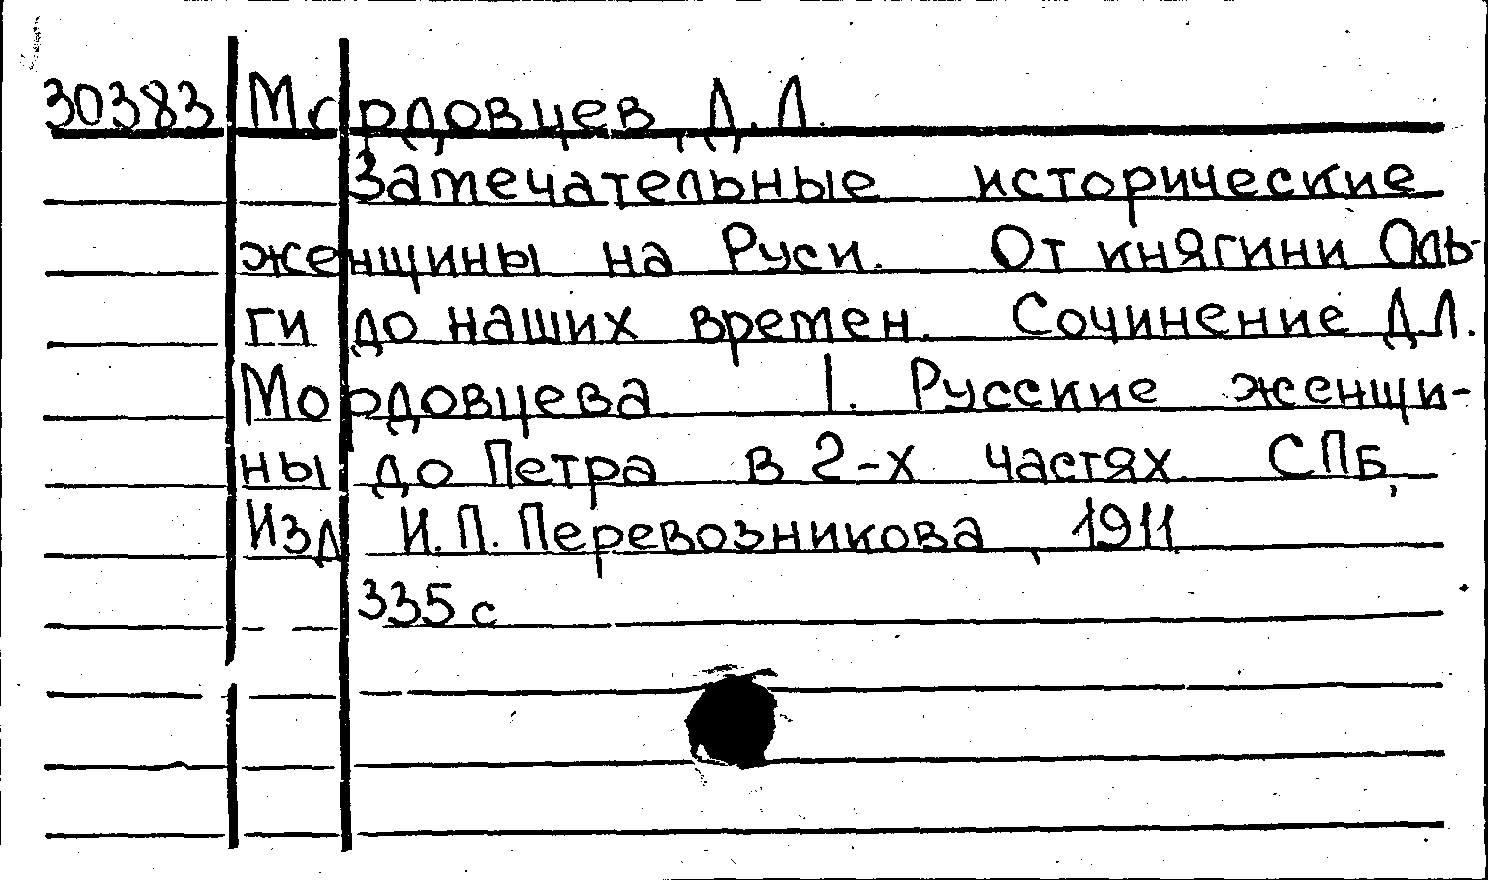 30383 Мордовцев, Д.Л.
Замечательные исторические
женщины на Руси. От княгини Оль-
ги до наших времен. Сочинение Д.Л.
Мордовцева 1. Русские женщи-
ны до Петра в 2-х частях. СПб,
Изд И.П. Перевозникова, 1911
335 с